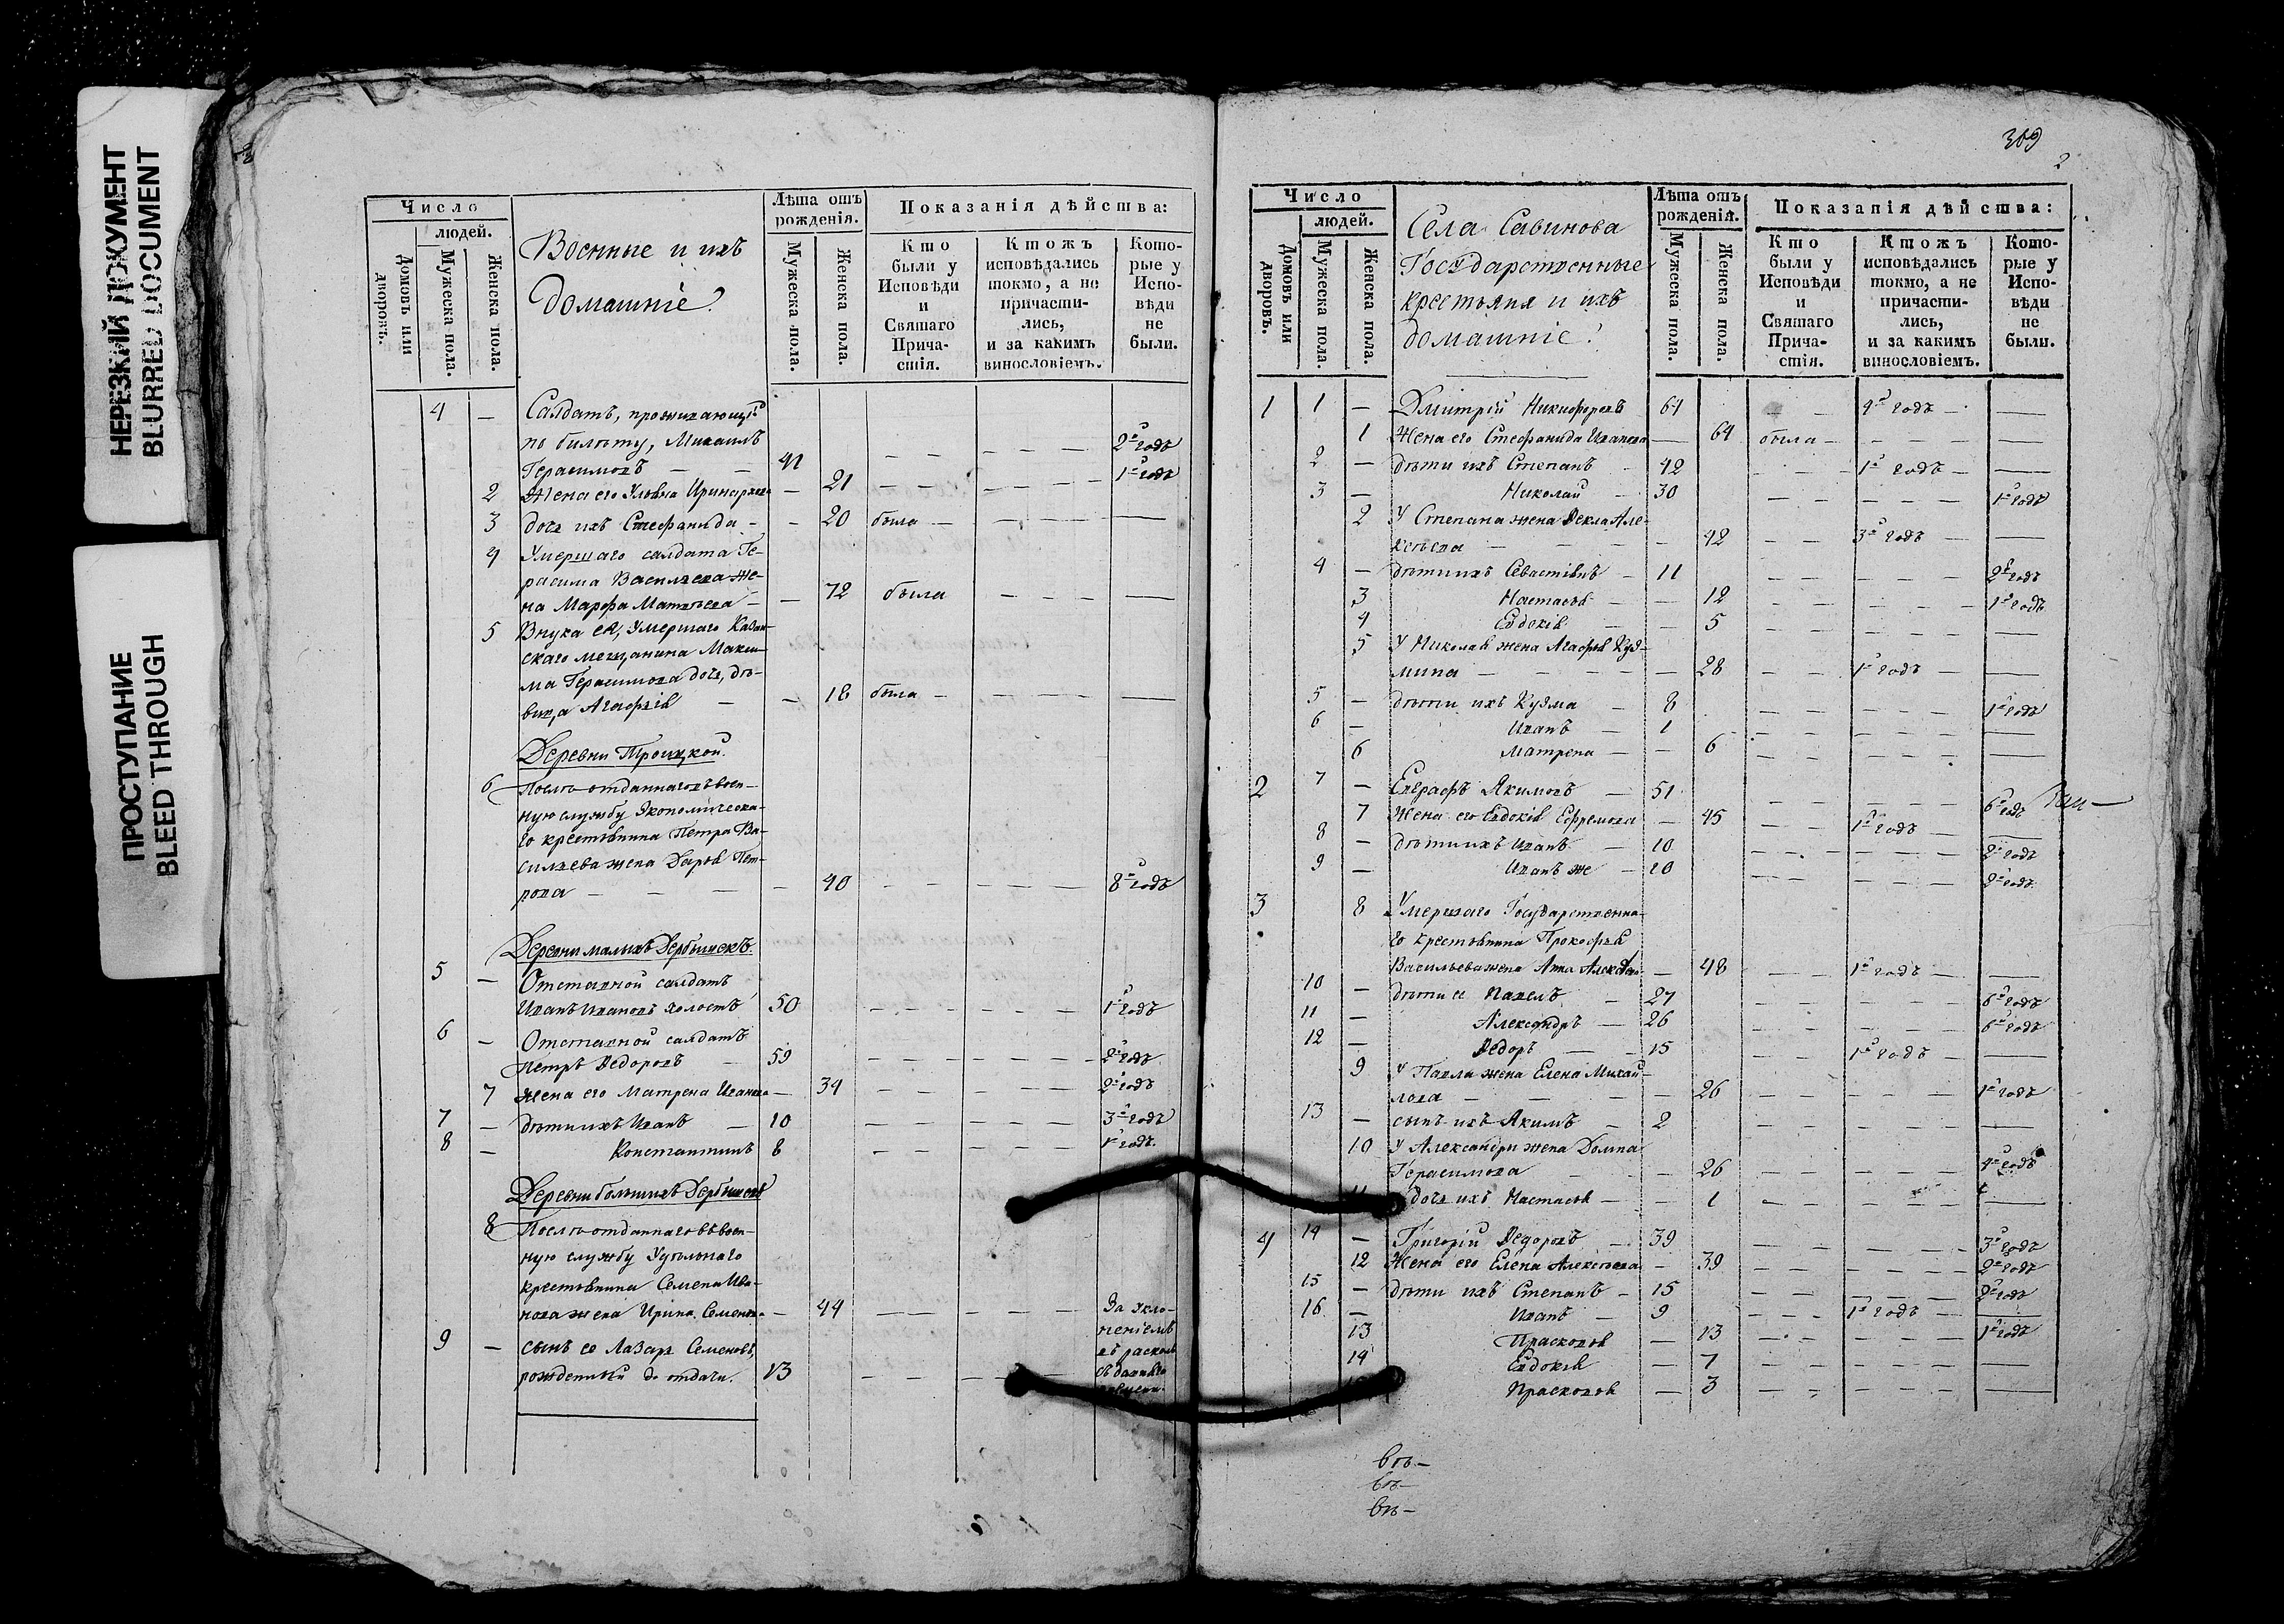 НЕРЕЗКИЙ ДОКУМЕНТ
BLURRED DOCUMENT
ПРОСТУПАНИЕ
BLEED THROUGH
Число
людей.
Домовъ или дворовъ.
Мужеска пола.
Женска пола.
Военные и ихъ
домашніе.
Лѣта отъ рожденія.
Мужеска пола.
Женска пола.
Показанія дѣйства:
Кто были у Исповѣди и Святаго Причастія.
Ктожъ исповѣдались токмо, а не причастились, и за какимъ винословіемъ.
Которые у Исповѣди не были.
4 — Салдатъ, проживающій
по билету, Михаилъ 2й годъ
Герасимовъ — — 41 1й годъ
2 Жена его Ульяна Иринархова — 21
3 дочь ихъ Стефанида — — 20 была —
4 Умершаго салдата Ге-
расима Васильева же-
на Марфа Матвѣева — — 72 была
5 Внука ея, умершаго Казан-
скаго мещанина Макси-
ма Герасимова дочь, дѣ-
вица Агафія — — 18 была —
Деревни Троицкой.
6 Послѣ отданнаго въ воен-
ную службу Экономическа-
го крестьянина Петра Ва-
сильева жена Дарья Пет-
рова — — — 40 8й годъ
Деревни малыхъ Дербышекъ.
5 — Отставной салдатъ
Иванъ Ивановъ холостъ 50 1й годъ
6 — Отставной салдатъ
Петръ Ѳедоровъ — 59 2й годъ
7 жена его Матрена Иванова — 34 2й годъ
7 — дѣти ихъ Иванъ — 10 3й годъ
8 — Константинъ 8 1й годъ
Деревни большихъ Дербышекъ
8 Послѣ отданнаго въ воен-
ную службу Удѣльнаго
крестьянина Семена Ива-
нова жена Ирина Семенова — 44 За укло-
неніемъ
9 — сынъ ее Лазарь Семеновъ, въ расколъ
рожденный до отдачи. 13
309
2
Число
людей.
Домовъ или дворовъ.
Мужеска пола
Женска пола.
Села Савинова
Государственные
крестьяня и ихъ
домашніе.
Лѣта отъ рожденія.
Мужеска пола.
Женска пола.
Показанія дѣйства:
Кто были у Исповѣди и Святаго Причастія.
Ктожъ исповѣдались токмо, а не причастились, и за какимъ винословіемъ.
Которые у Исповѣди не были.
1 1 — Дмитрій Никифоровъ 61 4й годъ —
1 Жена его Стефанида Иванова — 64 была —
2 — дѣти ихъ Степанъ 42 1й годъ —
3 — Николай — 30 1й годъ
2 У Степана жена Ѳекла Але-
ксѣева — 42 3й годъ —
4 — дѣти ихъ Севастіянъ — 11 2й годъ
3 Настасья — — 12 1й годъ
4 Евдокія — — 5
5 У Николая жена Агафья Куз-
мина — 28 1й годъ —
5 — дѣти ихъ Кузма — 8 1й годъ
6 — Иванъ — 1
6 Матрена — — 6
2 7 — Евграфъ Якимовъ — 51 6й годъ
7 Жена его Евдокія Ефремова — 45 1й годъ —
8 — дѣти ихъ Иванъ — 10 2й годъ
9 — Иванъ же — 10 2й годъ
3 8 Умершаго Государственна-
го крестьянина Прокофья
Васильева жена Анна — 48 1й годъ —
10 — дѣти ее Павелъ — 27 6й годъ
11 — Александръ — 26 6й годъ
12 — Ѳедоръ — 15 1й годъ —
9 У Павла жена Елена Михай-
лова — 26 1й годъ
13 — сынъ ихъ Якимъ — 2
10 У Александра жена Домна
Герасимова — 26 4й годъ
11 дочь ихъ Настасья — — 1
4 14 — Григорій Ѳедоровъ — 39 3й годъ
12 Жена его Елена Алексѣева — 39 2й годъ
15 — дѣти ихъ Степанъ — 15 2й годъ
16 — Иванъ — 9 1й годъ —
13 Прасковья — 13 1й годъ
14 Евдокія — 7
Прасковья — 3